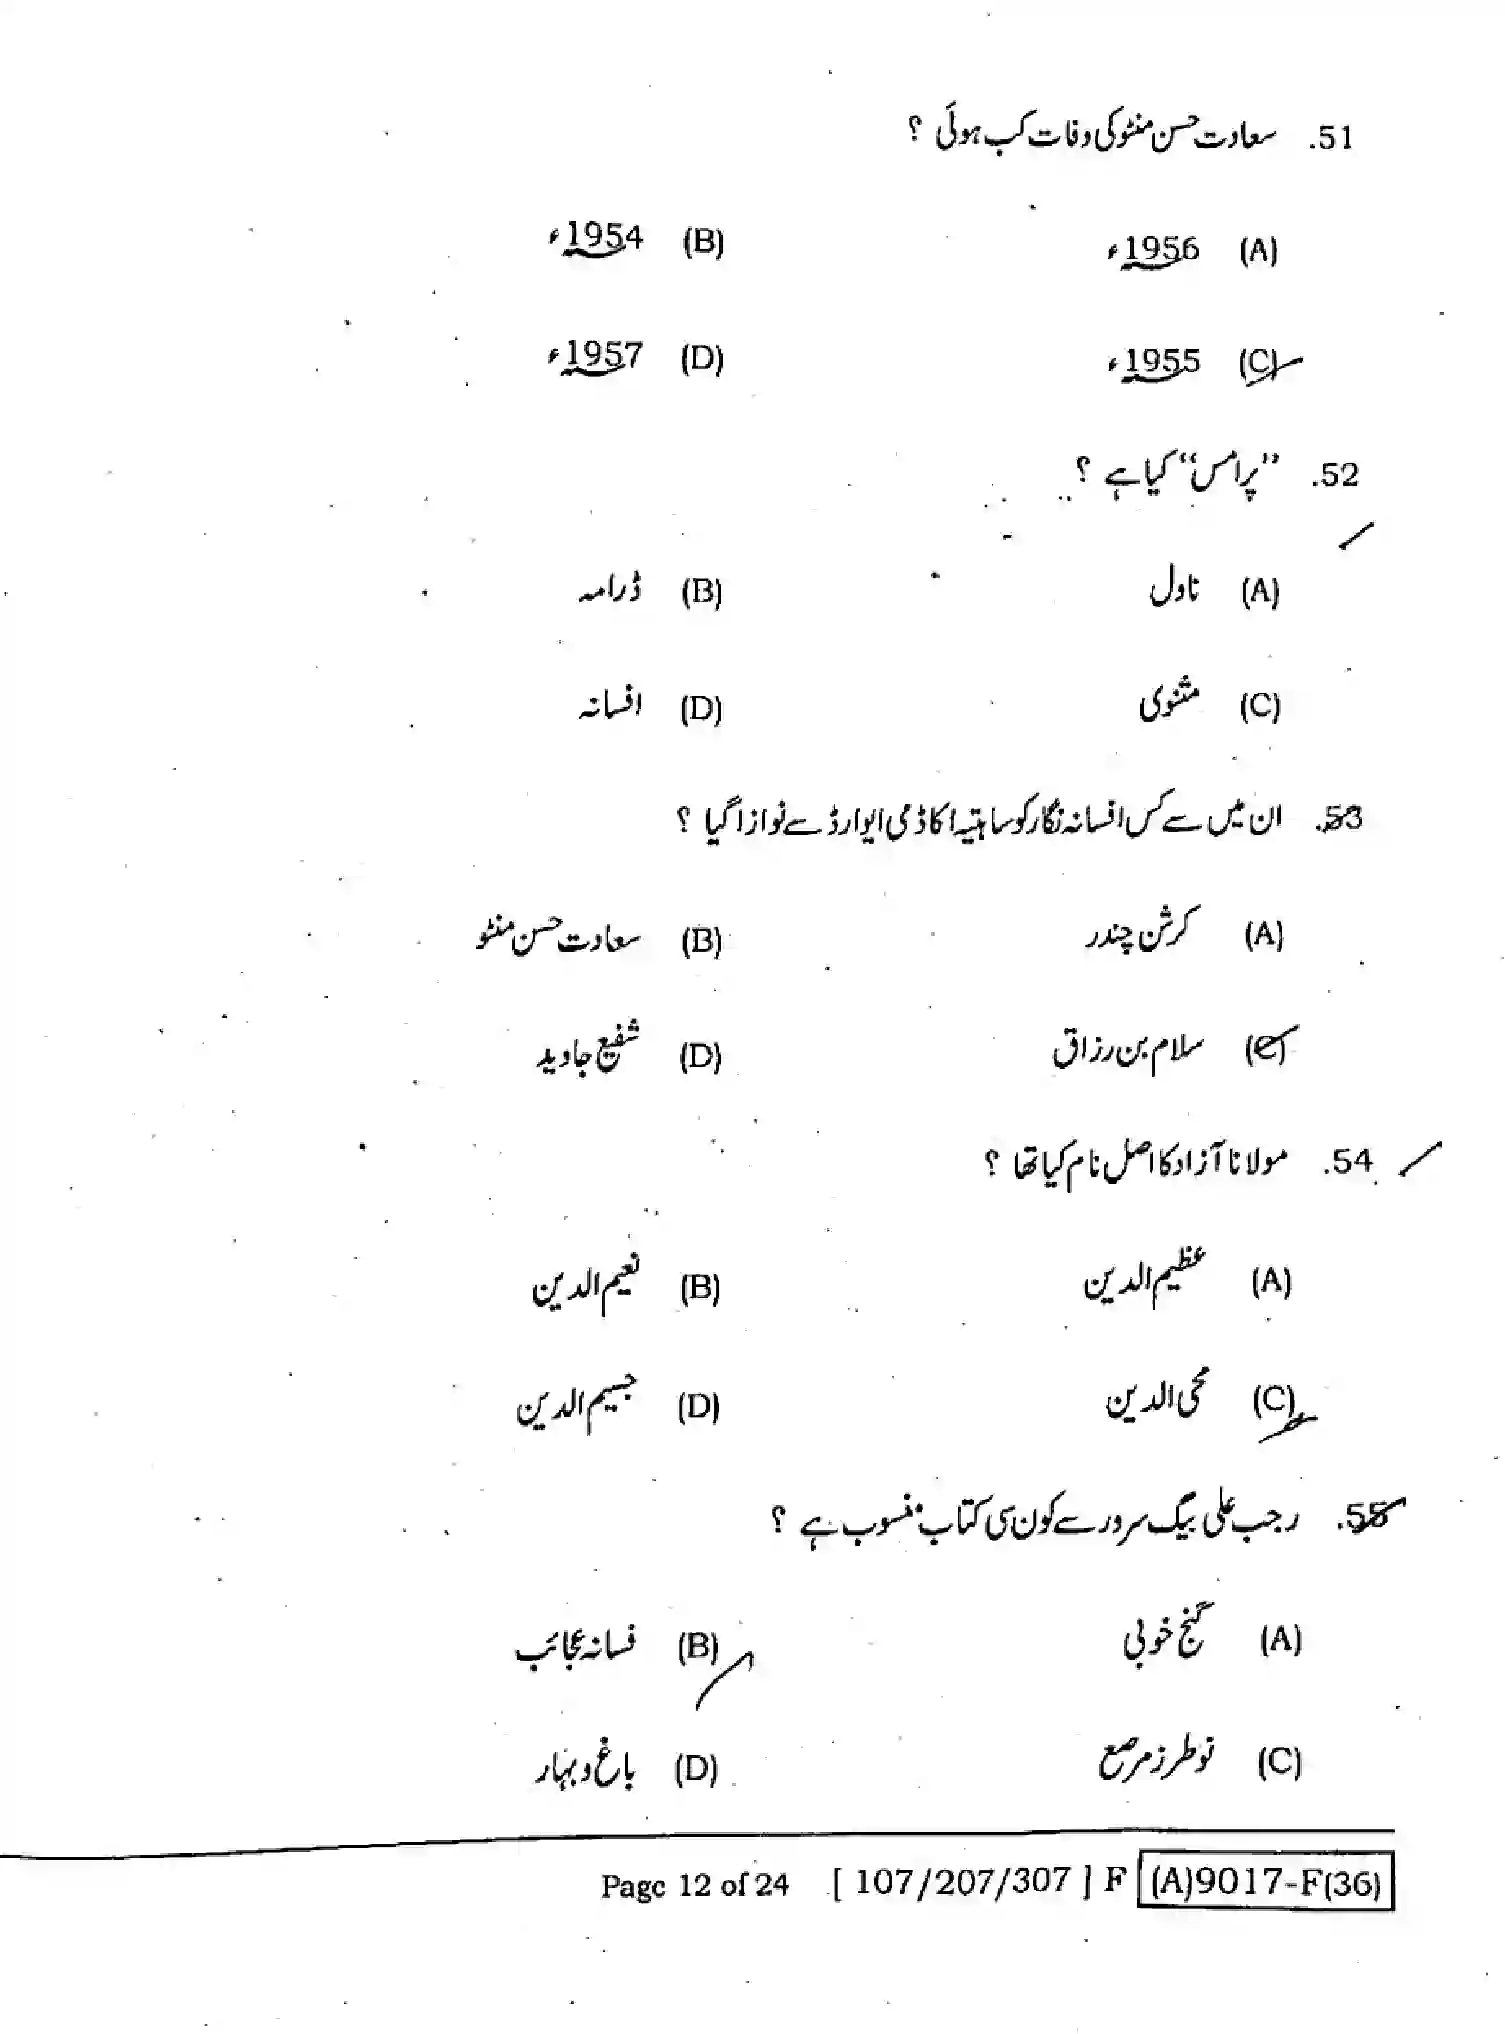 51. سعادت حسن منٹو کی وفات کب ہوئی ؟
(A) 1956ء (B) 1954ء
(C) 1955ء (D) 1957ء
52. ”پرامس“ کیا ہے ؟
(A) ناول (B) ڈرامہ
(C) مثنوی (D) افسانہ
53. ان میں سے کس افسانہ نگار کو ساہتیہ اکاڈمی ایوارڈ سے نوازا گیا ؟
(A) کرشن چندر (B) سعادت حسن منٹو
(C) سلام بن رزاق (D) شفیع جاوید
54. مولانا آزاد کا اصل نام کیا تھا ؟
(A) عظیم الدین (B) نعیم الدین
(C) محی الدین (D) جسیم الدین
55. رجب علی بیگ سرور سے کون سی کتاب منسوب ہے ؟
(A) گنج خوبی (B) فسانہ عجائب
(C) نوطرز مرصع (D) باغ و بہار
Page 12 of 24 [ 107/207/307 ] F (A)9017-F(36)